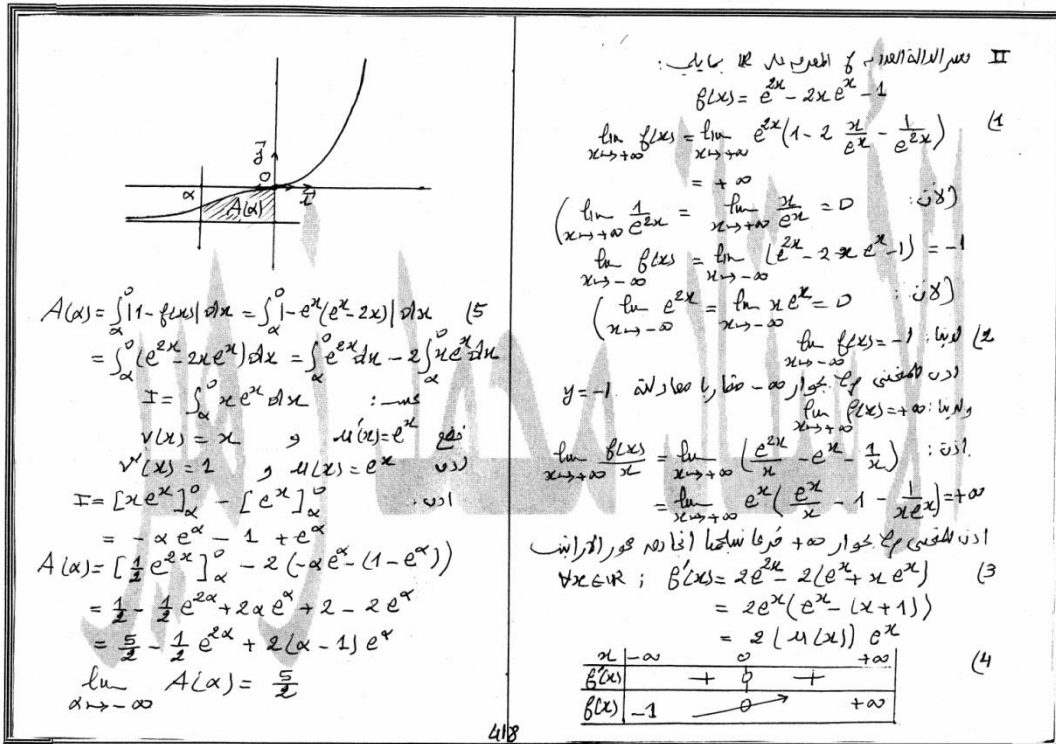 II نعتبر الدالة العددية f المعرفة على ℝ بما يلي:
f(x) = e^{2x} - 2x e^x - 1
(1 lim_{x→+∞} f(x) = lim_{x→+∞} e^{2x}(1 - 2 x/e^x - 1/e^{2x})
= +∞
(لأن: lim_{x→+∞} 1/e^{2x} = lim_{x→+∞} x/e^x = 0)
lim_{x→-∞} f(x) = lim_{x→-∞} (e^{2x} - 2x e^x - 1) = -1
(لأن: lim_{x→-∞} e^{2x} = lim_{x→-∞} x e^x = 0)
(2 لدينا: lim_{x→-∞} f(x) = -1
اذن المنحنى يقبل بجوار -∞ مقاربا معادلته y = -1
ولدينا: lim_{x→+∞} f(x) = +∞
اذن: lim_{x→+∞} f(x)/x = lim_{x→+∞} (e^{2x}/x - e^x - 1/x)
= lim_{x→+∞} e^x(e^x/x - 1 - 1/(x e^x)) = +∞
اذن المنحنى يقبل بجوار +∞ فرعا شلجميا اتجاهه محور الاراتيب
(3 ∀x∈ℝ ; f'(x) = 2e^{2x} - 2(e^x + x e^x)
= 2e^x(e^x - (x+1))
= 2(u(x)) e^x
(4 x -∞ 0 +∞
f'(x) + 0 +
f(x) -1 0 +∞
j
α O i
A(α)
(5 A(α) = ∫_α^0 |1 - f(x)| dx = ∫_α^0 |-e^x(e^x - 2x)| dx
= ∫_α^0 (e^{2x} - 2x e^x) dx = ∫_α^0 e^{2x} dx - 2∫_α^0 x e^x dx
نحسب: I = ∫_α^0 x e^x dx
نضع u'(x) = e^x و v(x) = x
اذن u(x) = e^x و v'(x) = 1
اذن: I = [x e^x]_α^0 - [e^x]_α^0
= -α e^α - 1 + e^α
A(α) = [1/2 e^{2x}]_α^0 - 2(-α e^α - (1 - e^α))
= 1/2 - 1/2 e^{2α} + 2α e^α + 2 - 2e^α
= 5/2 - 1/2 e^{2α} + 2(α - 1) e^α
lim_{α→-∞} A(α) = 5/2
4/8